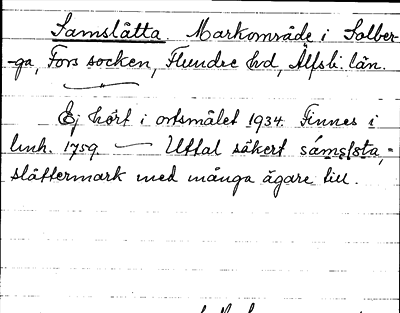 Samslätta. Markområde i Solber-
-ga, Fors socken, Flundre hd, Älfsb. län.
Ej hört i ortsmålet 1934. Finnes i
lmh. 1759. — Uttal säkert
slåttermark med många ägare till.